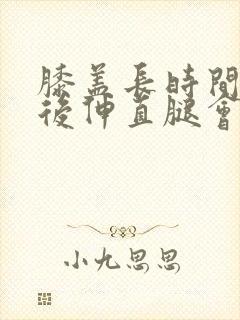 膝盖長時間
後伸直腿會
小九思思